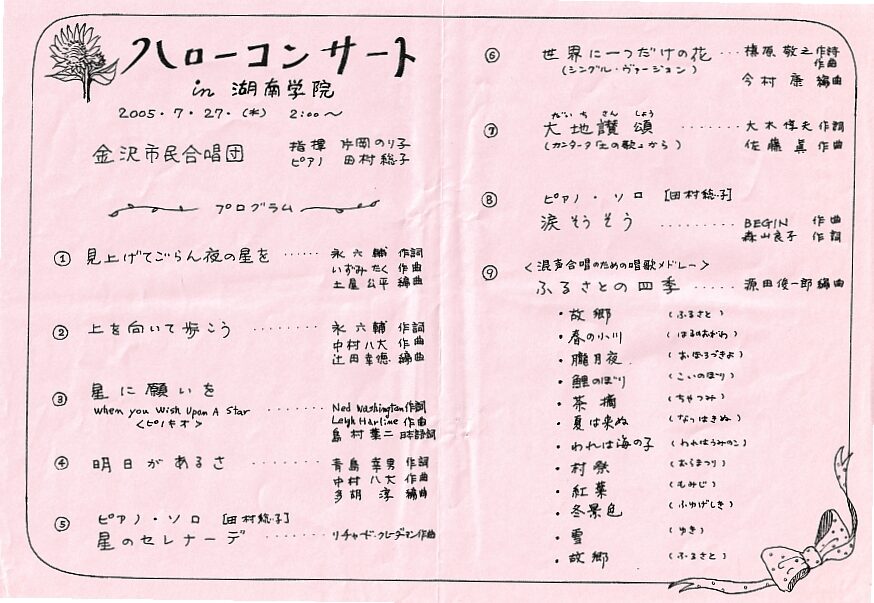 ハローコンサート
in 湖南学院
2005・7・27・(水) 2:00～
金沢市民合唱団
指揮 片岡のり子
ピアノ 田村総子
プログラム
① 見上げてごらん夜の星を ・・・・・・ 永六輔 作詞
いずみたく 作曲
土屋公平 編曲
② 上を向いて歩こう ・・・・・・・・ 永六輔 作詞
中村八大 作曲
辻田幸徳 編曲
③ 星に願いを
When you Wish Upon A Star ・・・・・・・ Ned Washington 作詞
<ピノキオ> Leigh Harline 作曲
島村葉二 日本語詞
④ 明日があるさ ・・・・・・・・ 青島幸男 作詞
中村八大 作曲
多胡淳 編曲
⑤ ピアノ・ソロ [田村総子]
星のセレナーデ ・・・・・・・ リチャード・クレーダーマン 作曲
⑥ 世界に一つだけの花 ・・・ 槙原敬之 作詩
作曲
(シングル・ヴァージョン)
今村康 編曲
⑦ 大地讃頌 ・・・・・・・・ 大木惇夫 作詞
だいち さん しょう
(カンタータ「土の歌」から) 佐藤眞 作曲
⑧ ピアノ・ソロ [田村総子]
涙そうそう ・・・・・・・・・ BEGIN 作曲
森山良子 作詞
⑨ <混声合唱のための唱歌メドレー>
ふるさとの四季 ・・・・・ 源田俊一郎 編曲
・故郷 (ふるさと)
・春の小川 (はるのおがわ)
・朧月夜 (おぼろづきよ)
・鯉のぼり (こいのぼり)
・茶摘 (ちゃつみ)
・夏は来ぬ (なつはきぬ)
・われは海の子 (われはうみのこ)
・村祭 (むらまつり)
・紅葉 (もみじ)
・冬景色 (ふゆげしき)
・雪 (ゆき)
・故郷 (ふるさと)